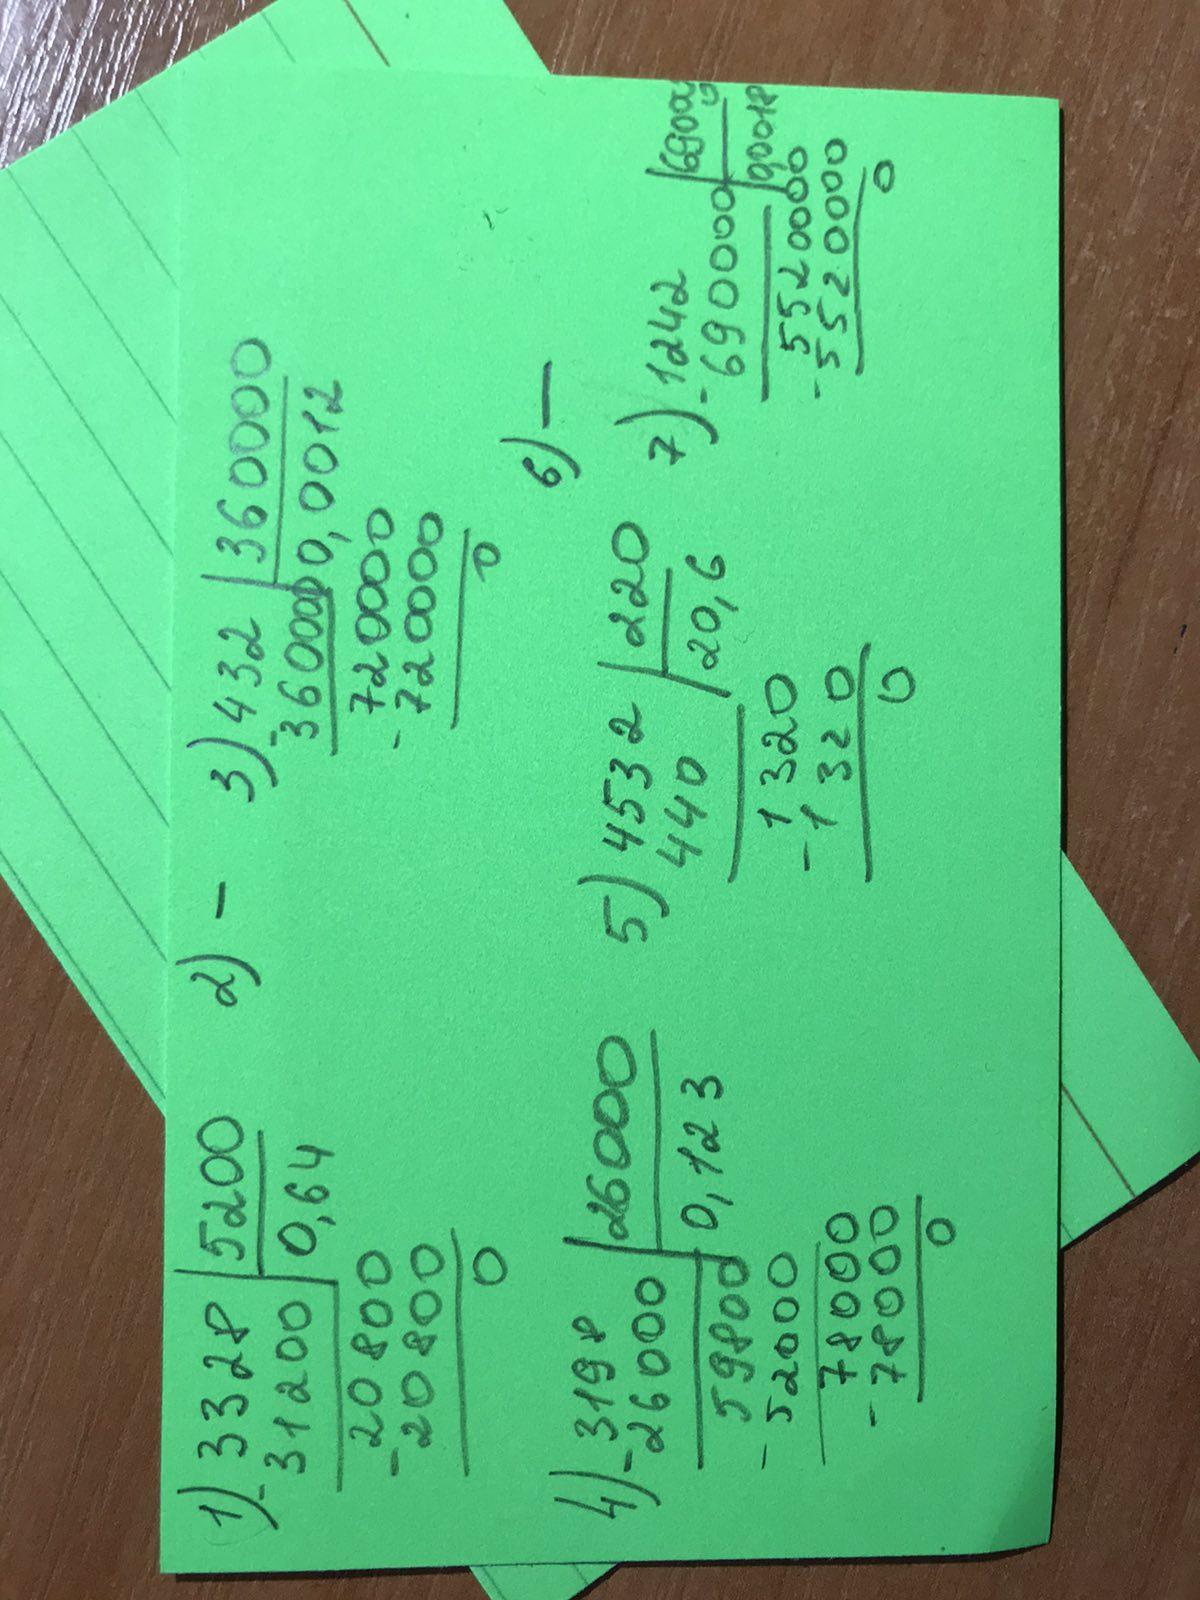 1) -3328 | 5200
31200 | 0,64
-20800
20800
0
2) -
3) -432 | 360000
360000 | 0,0012
-720000
720000
0
4) -3198 | 26000
26000 | 0,123
-59800
52000
-78000
78000
0
5) 4532 | 220
440 | 20,6
-1320
1320
0
6) -
7) -1242
690000
-5520000
5520000
0